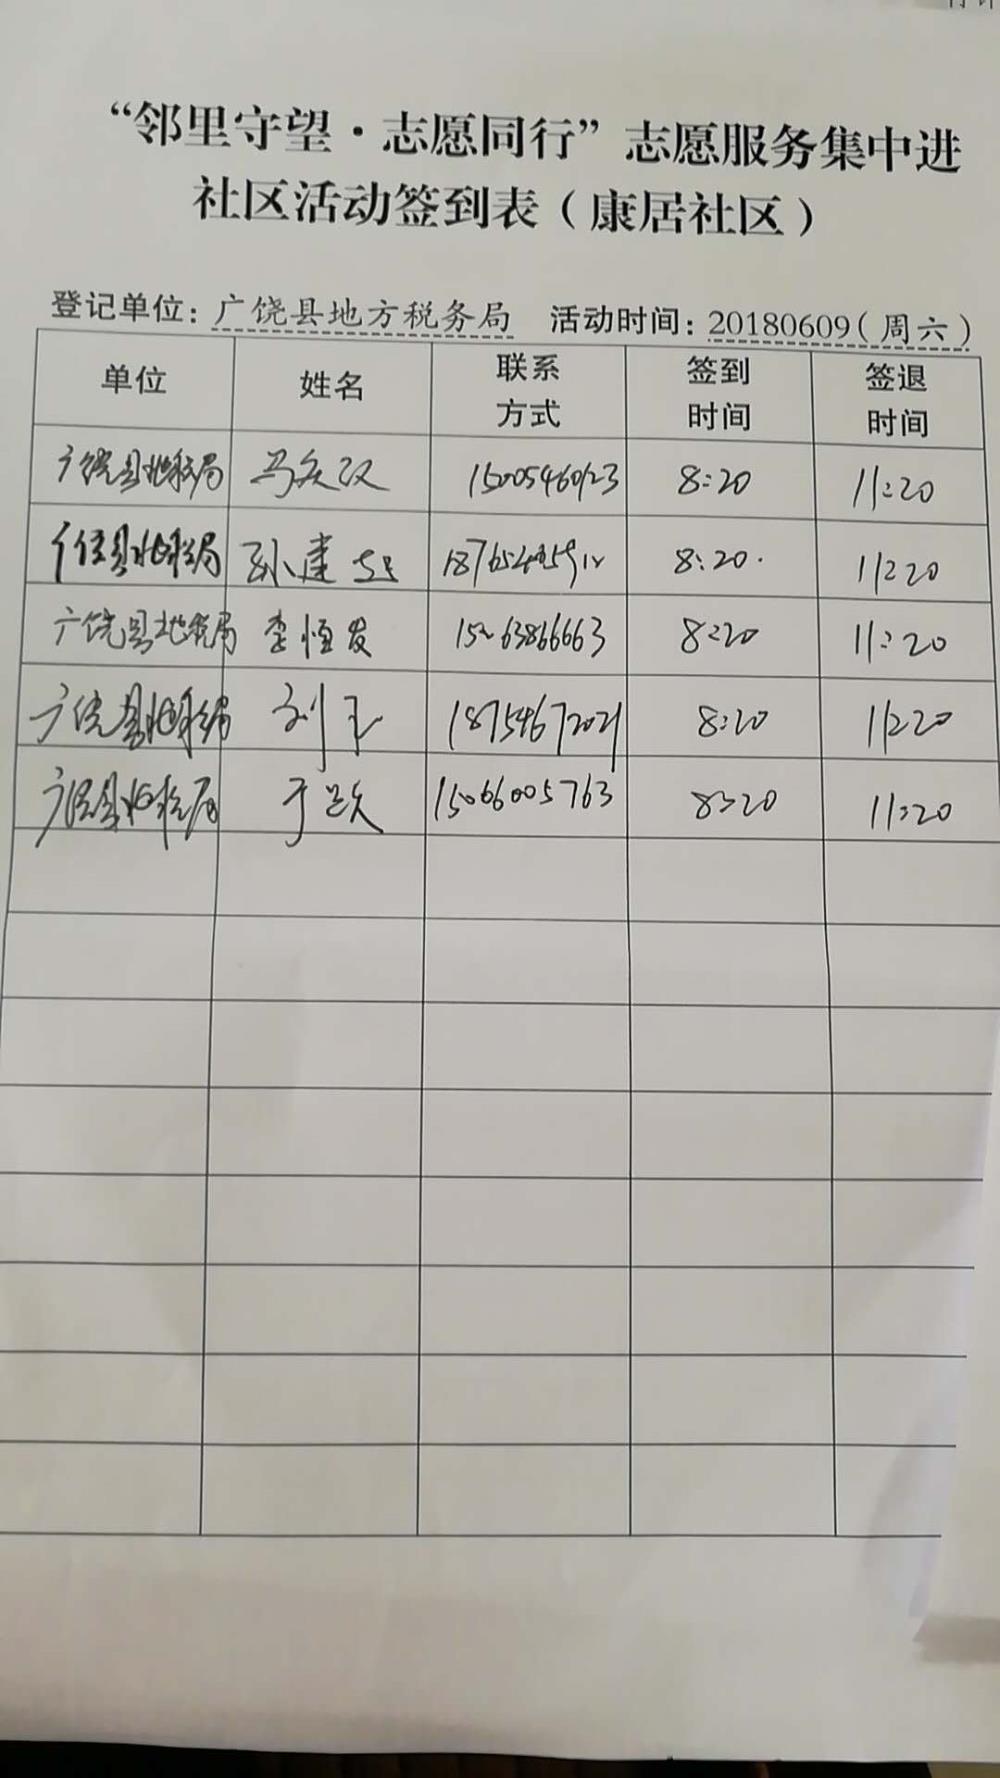 “邻里守望·志愿同行”志愿服务集中进
社区活动签到表（康居社区）
登记单位：广饶县地方税务局 活动时间：20180609（周六）
单位 姓名 联系方式 签到时间 签退时间
广饶县地税局 马庆汉 15005460123 8:20 11:20
广饶县地税局 孙建 8:20 11:20
广饶县地税局 李恒发 8:20 11:20
广饶县地税局 刘玉 18754672021 8:20 11:20
广饶县地税局 于跃 15066005763 8:20 11:20